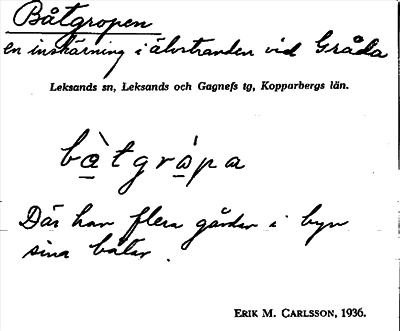 Båtgropen
en inskärning i älvstranden vid Gråda
Leksands sn, Leksands och Gagnefs tg, Kopparbergs län.
bàtgrápa
Där har flera gårdar i byn
sina båtar.
ERIK M. CARLSSON, 1936.